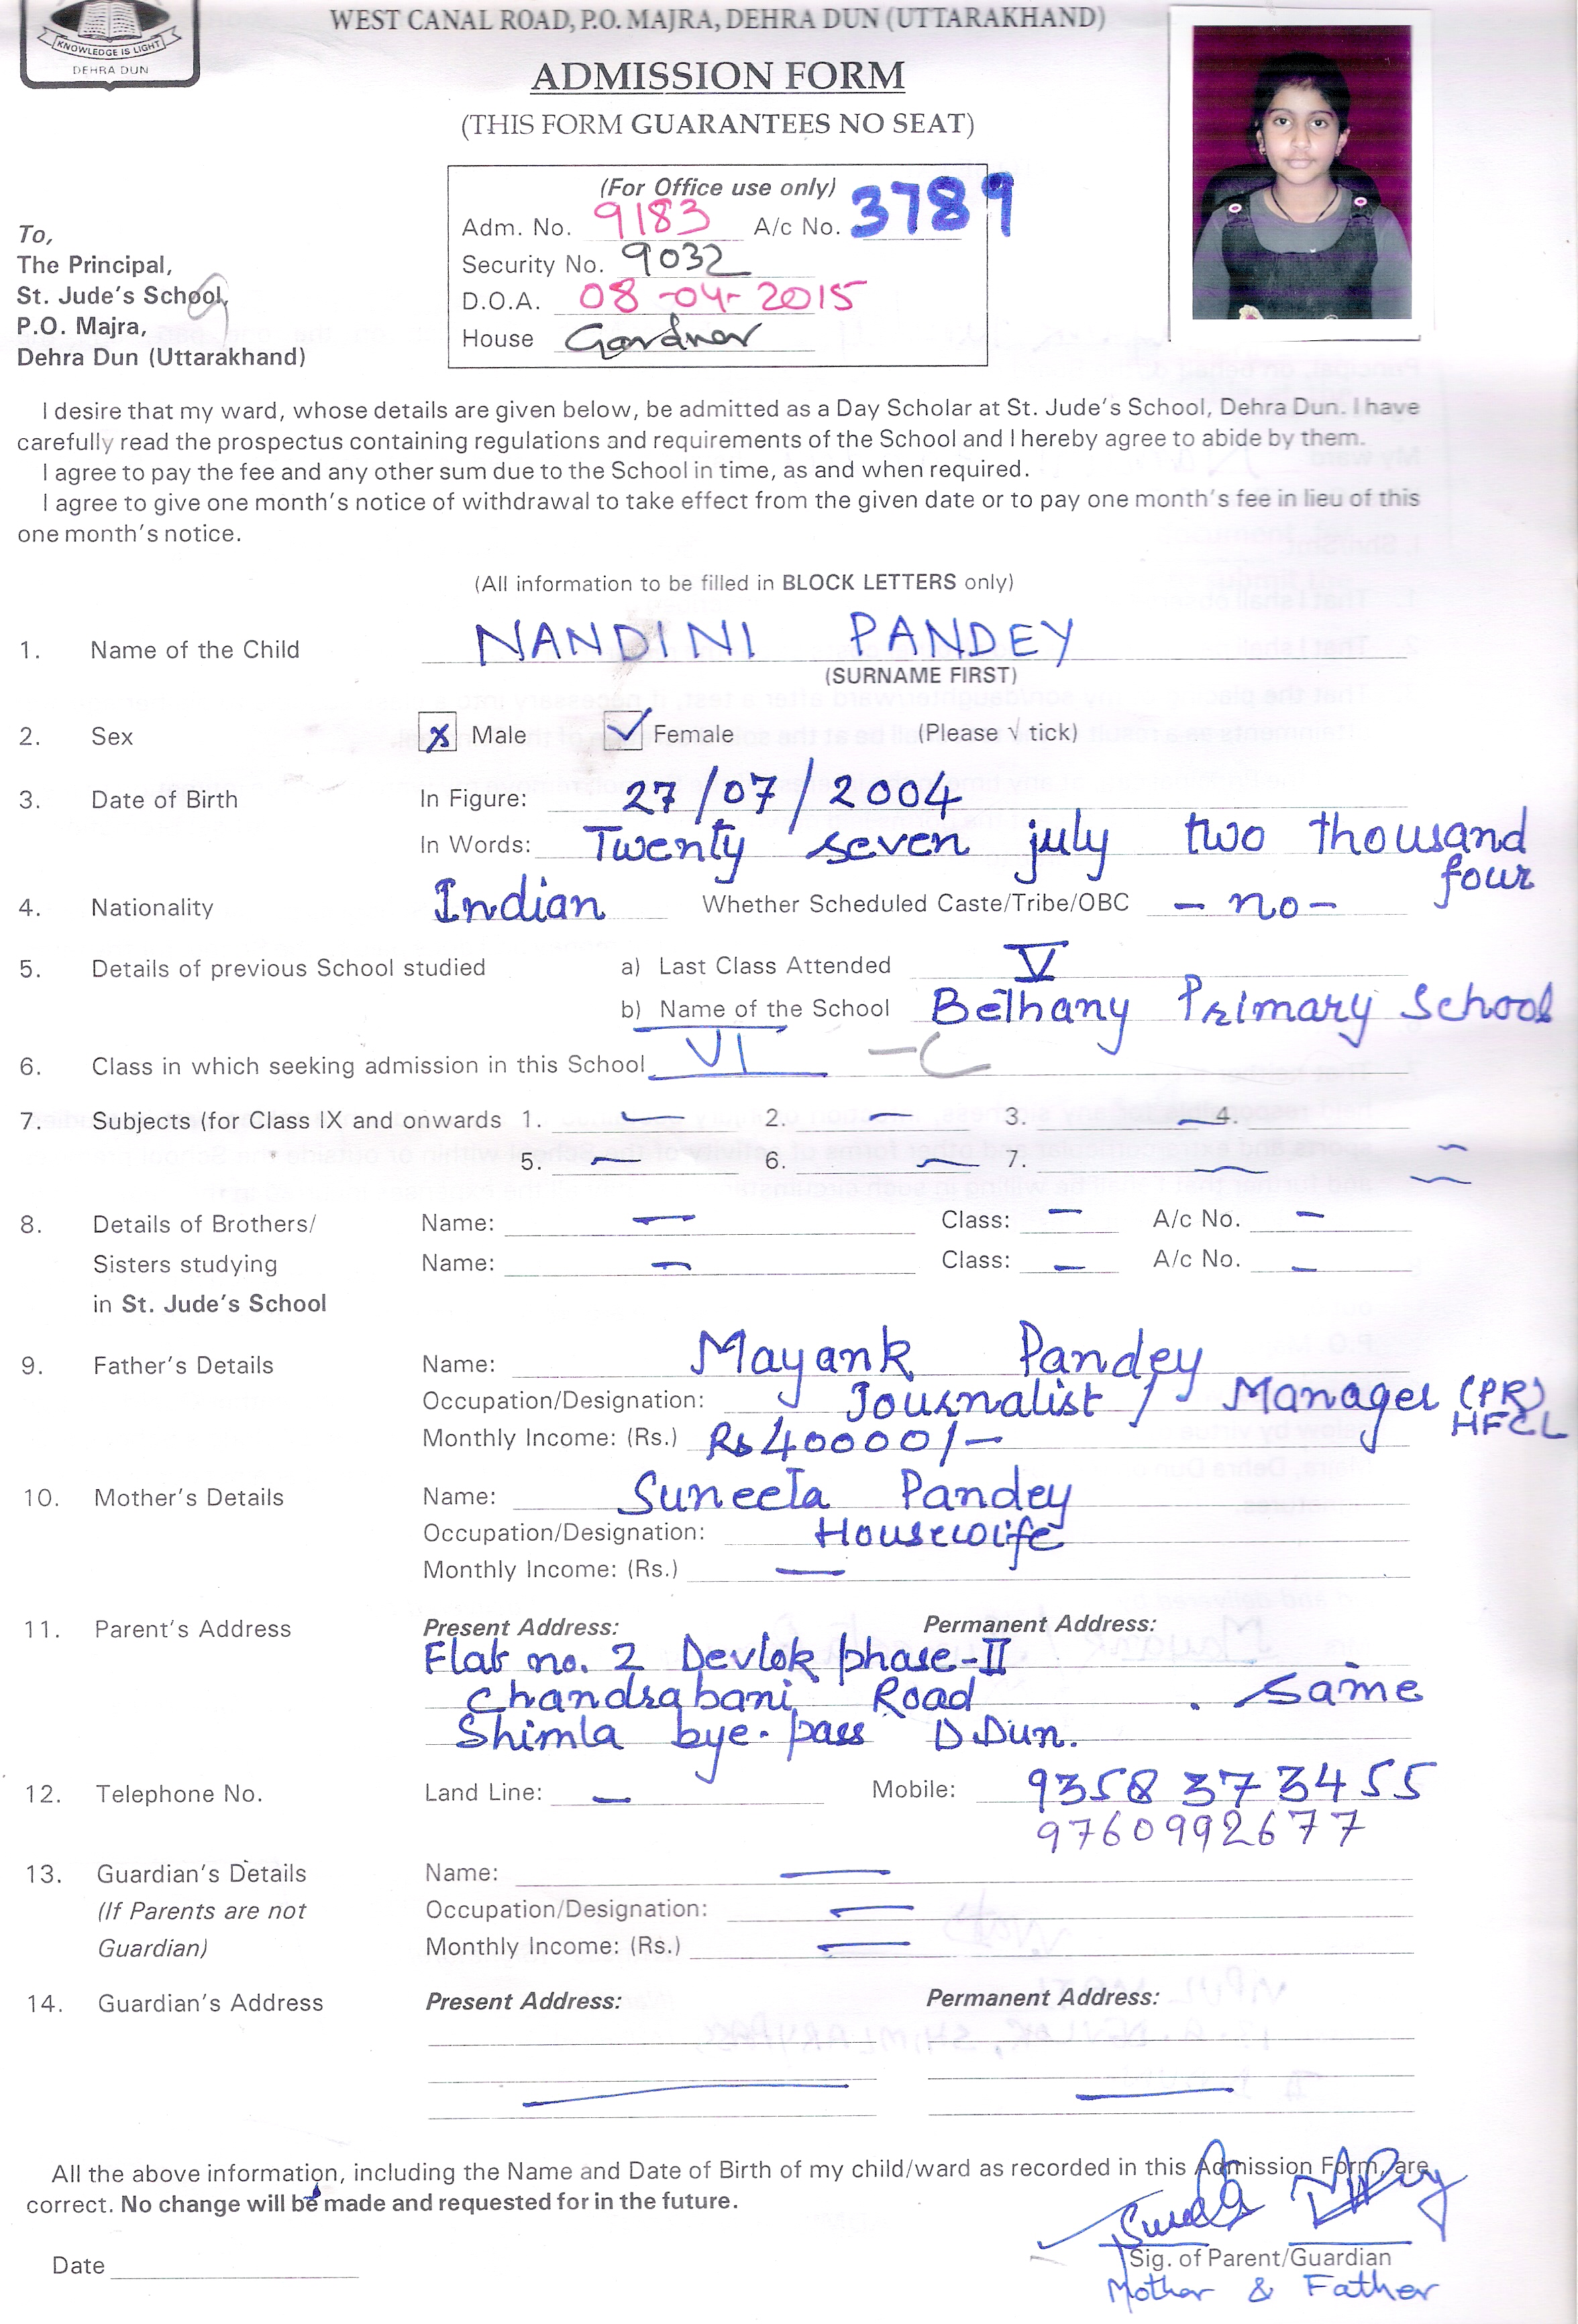 KNOWLEDGE IS LIGHT
DEHRA DUN
WEST CANAL ROAD, P.O. MAJRA, DEHRA DUN (UTTARAKHAND)
ADMISSION FORM
(THIS FORM GUARANTEES NO SEAT)
(For Office use only)
Adm. No. 9183 A/c No. 3789
Security No. 9032
D.O.A. 08-04-2015
House Gardner
To,
The Principal,
St. Jude's School,
P.O. Majra,
Dehra Dun (Uttarakhand)
I desire that my ward, whose details are given below, be admitted as a Day Scholar at St. Jude's School, Dehra Dun. I have
carefully read the prospectus containing regulations and requirements of the School and I hereby agree to abide by them.
I agree to pay the fee and any other sum due to the School in time, as and when required.
I agree to give one month's notice of withdrawal to take effect from the given date or to pay one month's fee in lieu of this
one month's notice.
(All information to be filled in BLOCK LETTERS only)
1. Name of the Child NANDINI PANDEY
(SURNAME FIRST)
2. Sex x Male ✓ Female (Please √ tick)
3. Date of Birth In Figure: 27/07/2004
In Words: Twenty seven july two thousand
four
4. Nationality Indian Whether Scheduled Caste/Tribe/OBC - no -
5. Details of previous School studied a) Last Class Attended V
b) Name of the School Bethany Primary School
6. Class in which seeking admission in this School VI - C
7. Subjects (for Class IX and onwards 1. — 2. — 3. — 4.
5. — 6. — 7. —
8. Details of Brothers/ Name: — Class: — A/c No. —
Sisters studying Name: — Class: — A/c No. —
in St. Jude's School
9. Father's Details Name: Mayank Pandey
Occupation/Designation: Journalist / Manager (PR)
HFCL
Monthly Income: (Rs.) Rs 40000/-
10. Mother's Details Name: Suneeta Pandey
Occupation/Designation: Housewife
Monthly Income: (Rs.) —
11. Parent's Address Present Address: Permanent Address:
Flat no. 2 Devlok phase-II
Chandrabani Road . Same
Shimla bye-pass D.Dun.
12. Telephone No. Land Line: — Mobile: 9358373455
9760992677
13. Guardian's Details Name: —
(If Parents are not Occupation/Designation: —
Guardian) Monthly Income: (Rs.) —
14. Guardian's Address Present Address: Permanent Address:
— —
All the above information, including the Name and Date of Birth of my child/ward as recorded in this Admission Form, are
correct. No change will be made and requested for in the future.
Date
Sig. of Parent/Guardian
Mother & Father